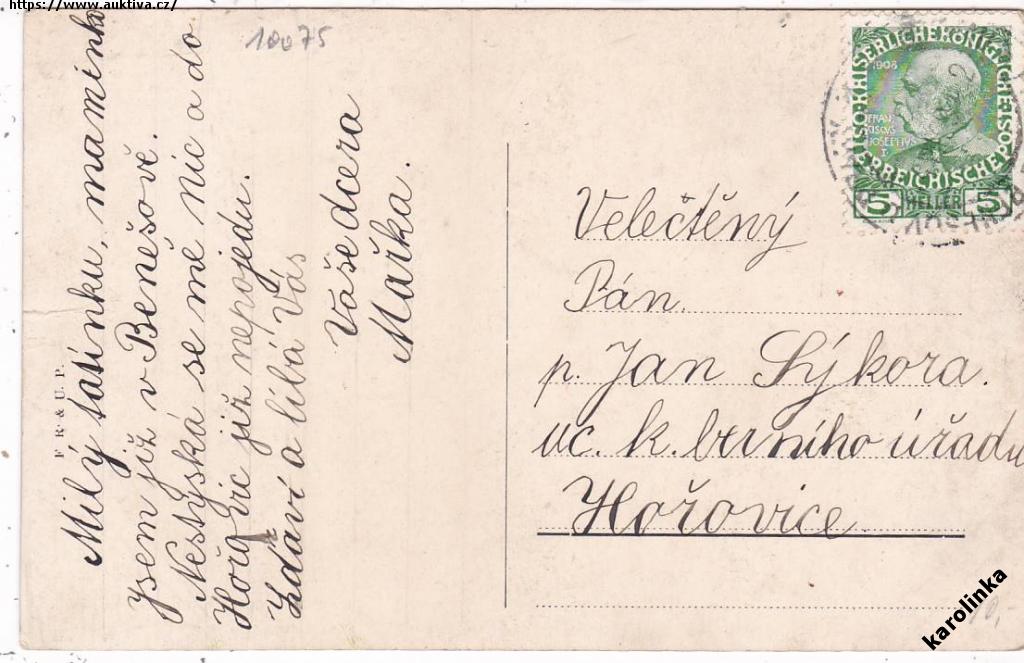 https://www.auktiva.cz/
10075
Milý tatínku, maminko
Jsem již v Benešově.
Nestýská se mě nic a do
Hořovic již nepojedu.
Zdraví a líbá Vás
Vaše dcera
Mařka.
F R. & U. P.
1908
KAISERLICHE KÖNIGLICHE
ÖSTERREICHISCHE POST
FRAN
CISCVS
JOSEPHVS
I.
5 HELLER 5
Velectěný
Pán.
p. Jan Sýkora.
uc. k. berního úřadu
Hořovice
10,-
karolinka